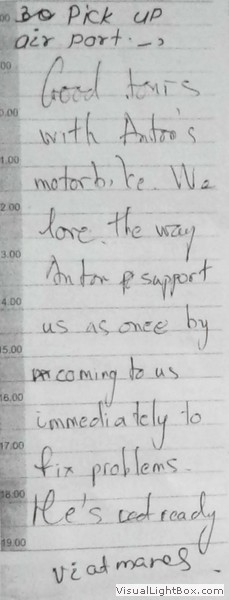 30 Pick up
air port.
Good tours
with Anton's
motorbike. We
love the way
Anton support
us as once by
coming to us
immediately to
fix problems.
He's
vietmares.
1.00
2.00
3.00
4.00
15.00
16.00
17.00
18.00
19.00
VisualLightBox.com